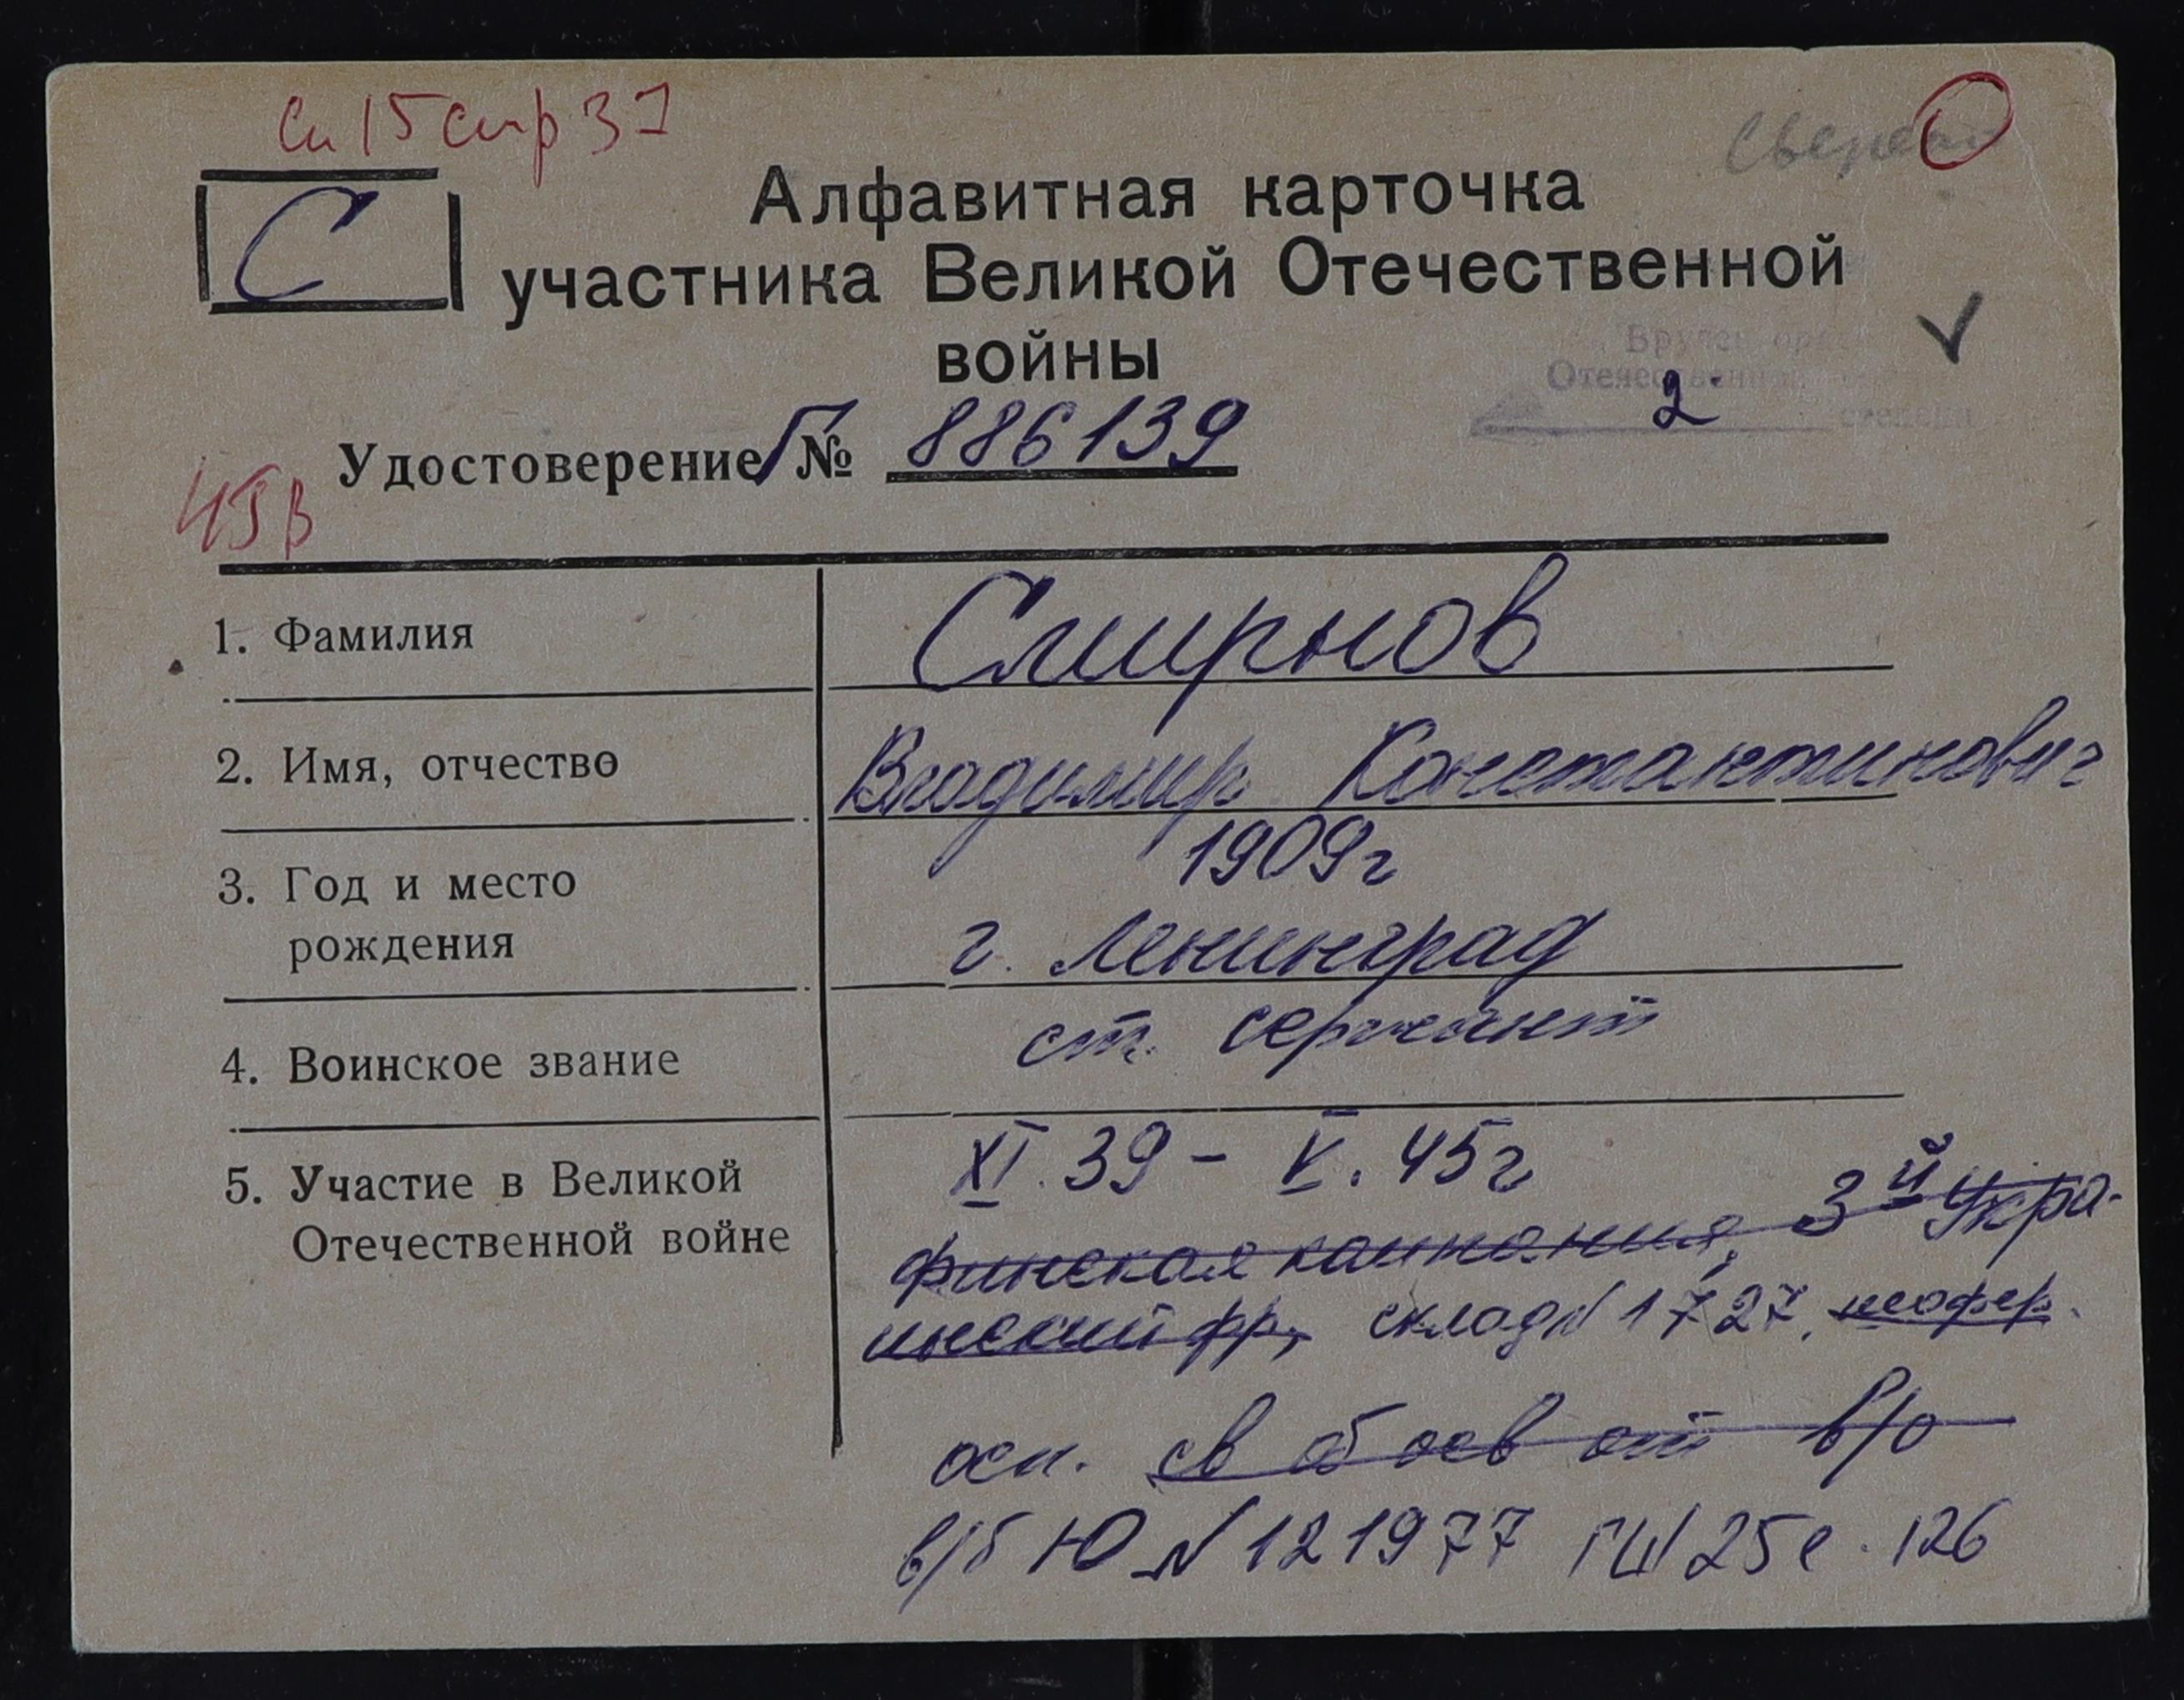 Сп 15 стр 37
С
Сверено
Алфавитная карточка
участника Великой Отечественной
войны
Вручен орден
Отечественной
2 степени
Удостоверение Г № 886139
45в
1. Фамилия Смирнов
2. Имя, отчество Владимир Константинович
3. Год и место 1909г
рождения г. Ленинград
4. Воинское звание ст. сержант
5. Участие в Великой XI.39 - V.45г
Отечественной войне финская кампания, 3й Укра-
инский фр, склад N 1727, шофер.
осн. св
в/б Ю N 121977 ГШ 25 с. 126